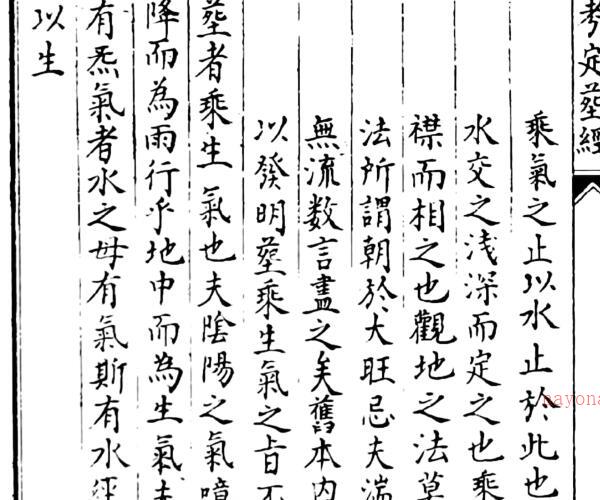 考定塟經
乘氣之止以水止於此也
水交之浅深而定之也乘
襟而相之也觀地之法草
法所謂朝於大旺忌夫湍
無流数言盡之矣舊本内
以發明塟乘生氣之旨不
塟者乘生氣也夫陰陽之氣噫
降而為雨行乎地中而為生氣夫
有炁氣者水之母有氣斯有水經
以生
nayona